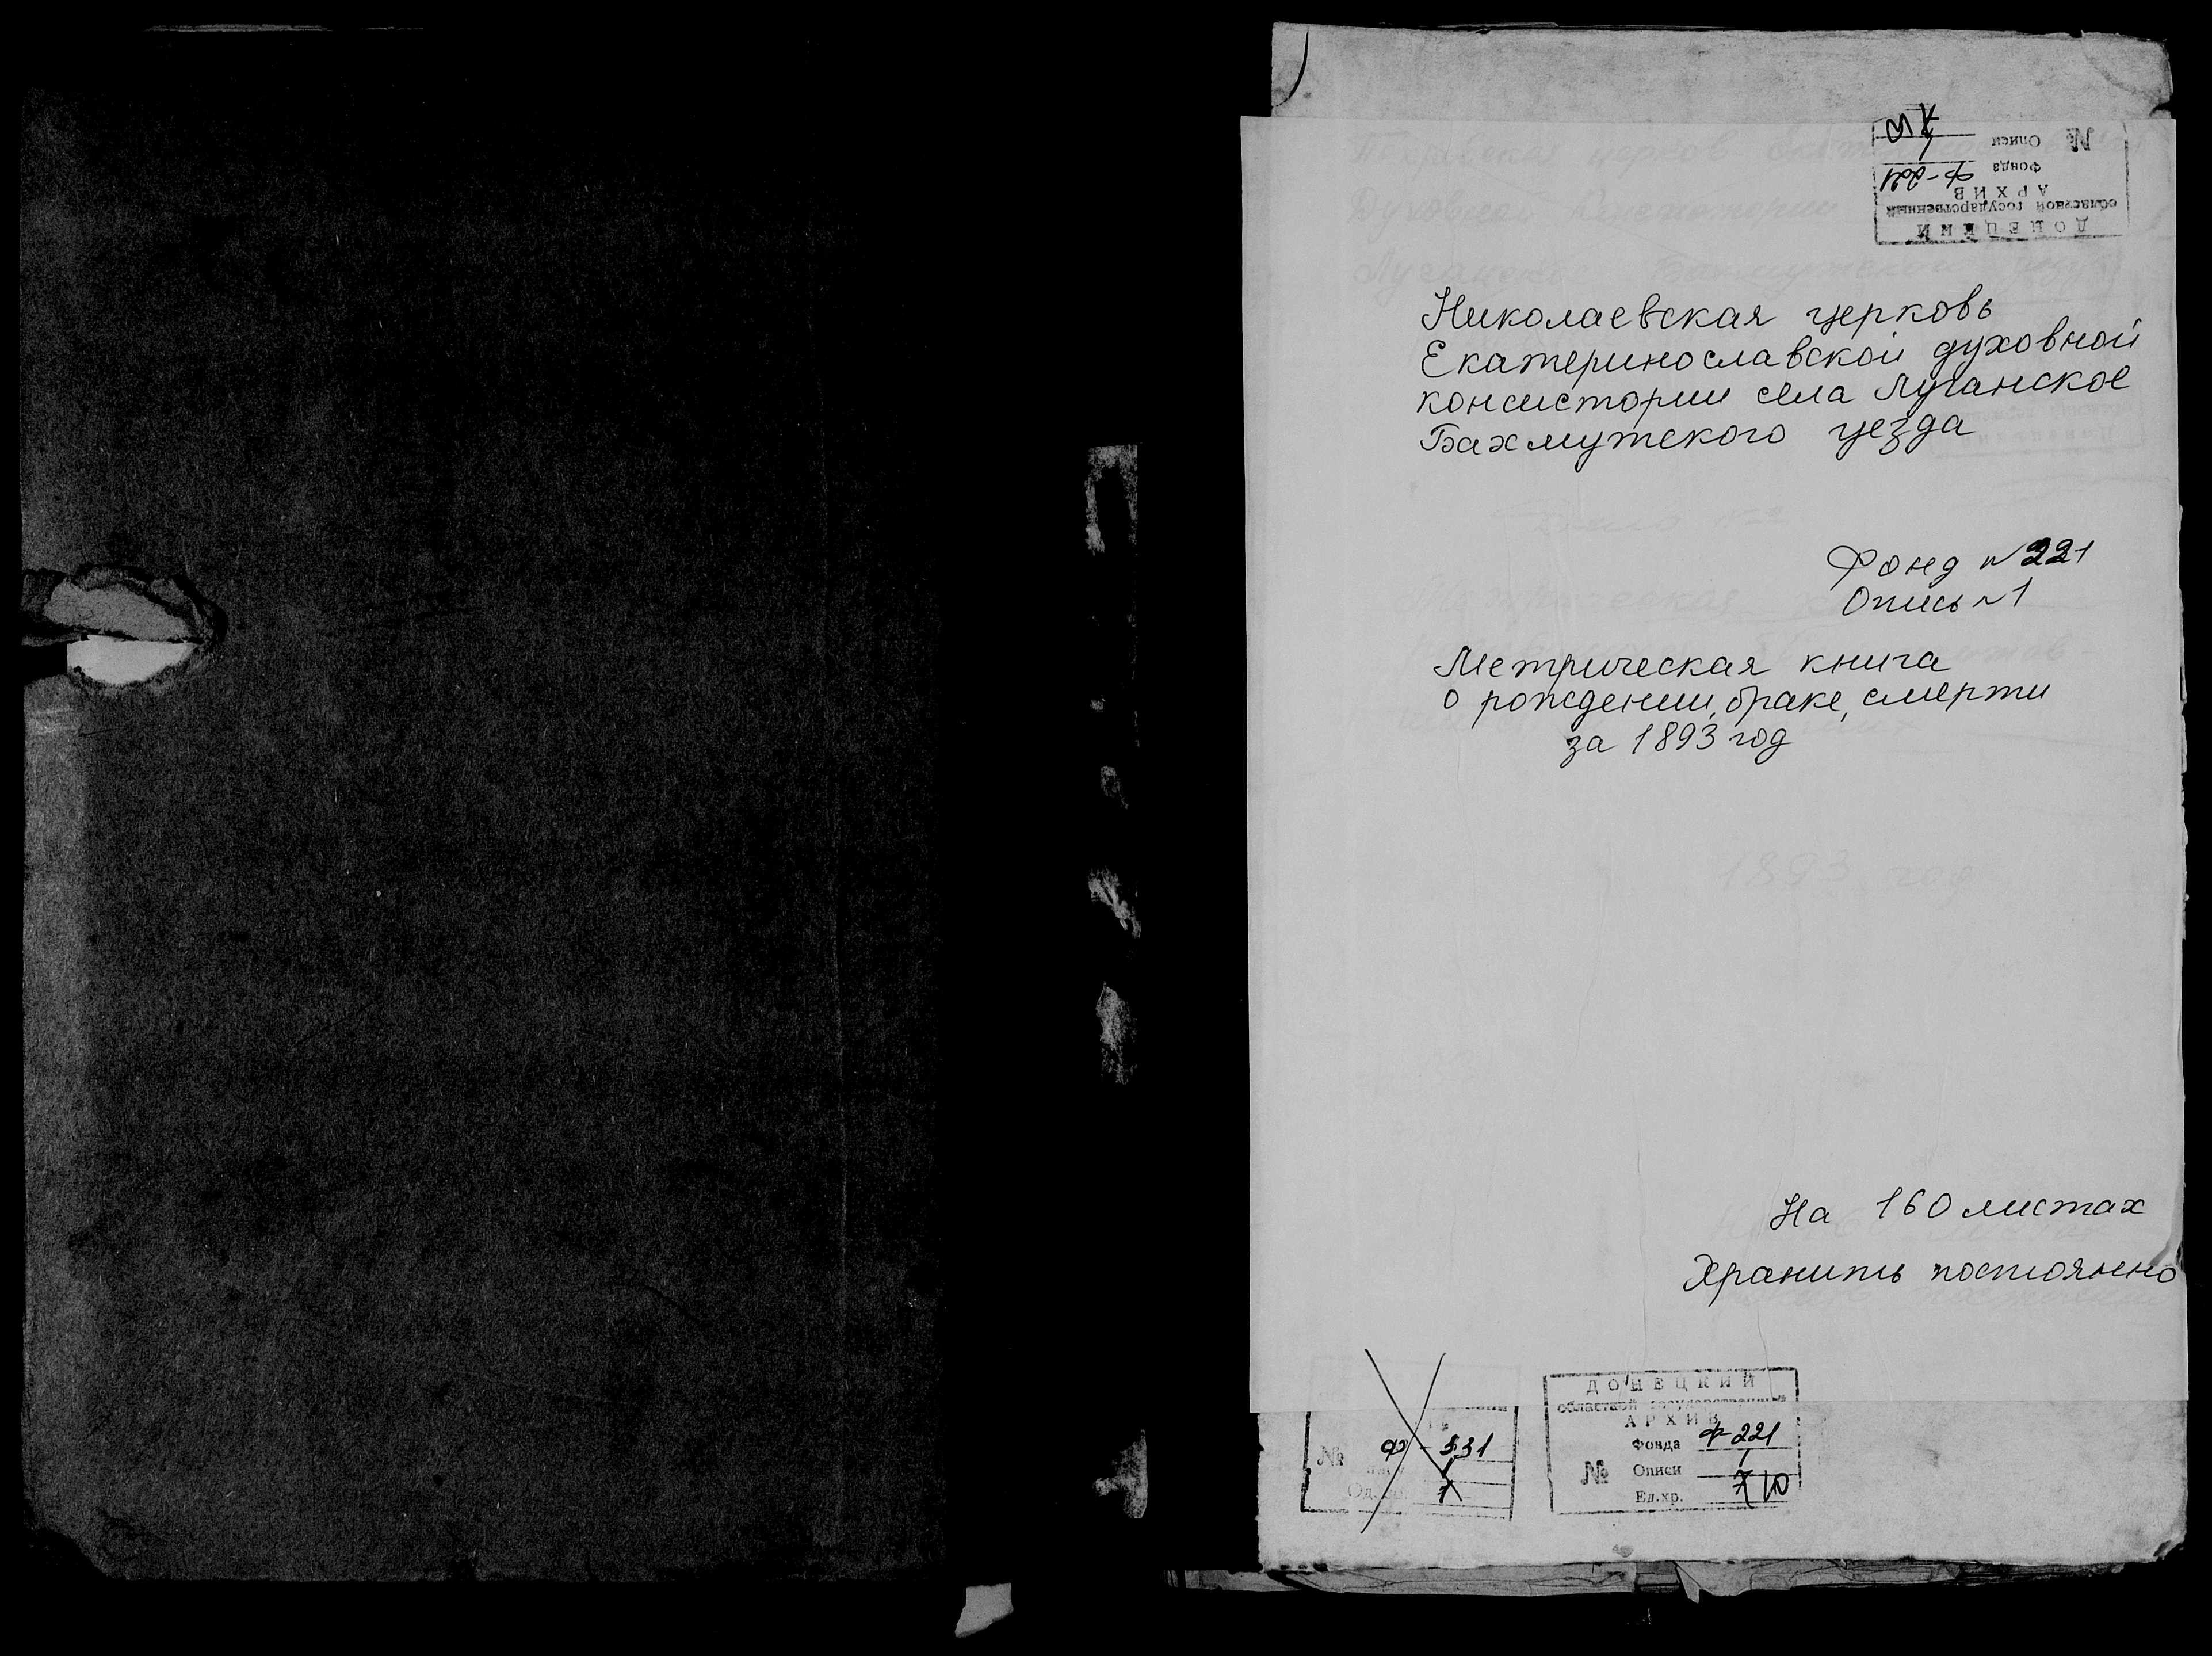 ДОНЕЦКИЙ
областной государственный
АРХИВ
Фонда Ф-221
№ Описи 1
Николаевская церковь
Екатеринославской духовной
консистории села Луганское
Бахмутского уезда
Фонд №221
Опись №1
Метрическая книга
о рождении, браке, смерти
за 1893 год
1893 год
На 160 листах
Хранить постоянно
№ Ф-331
1
ДОНЕЦКИЙ
областной государственный
АРХИВ
Фонда Ф-221
№ Описи 1
Ед.хр. 7 10